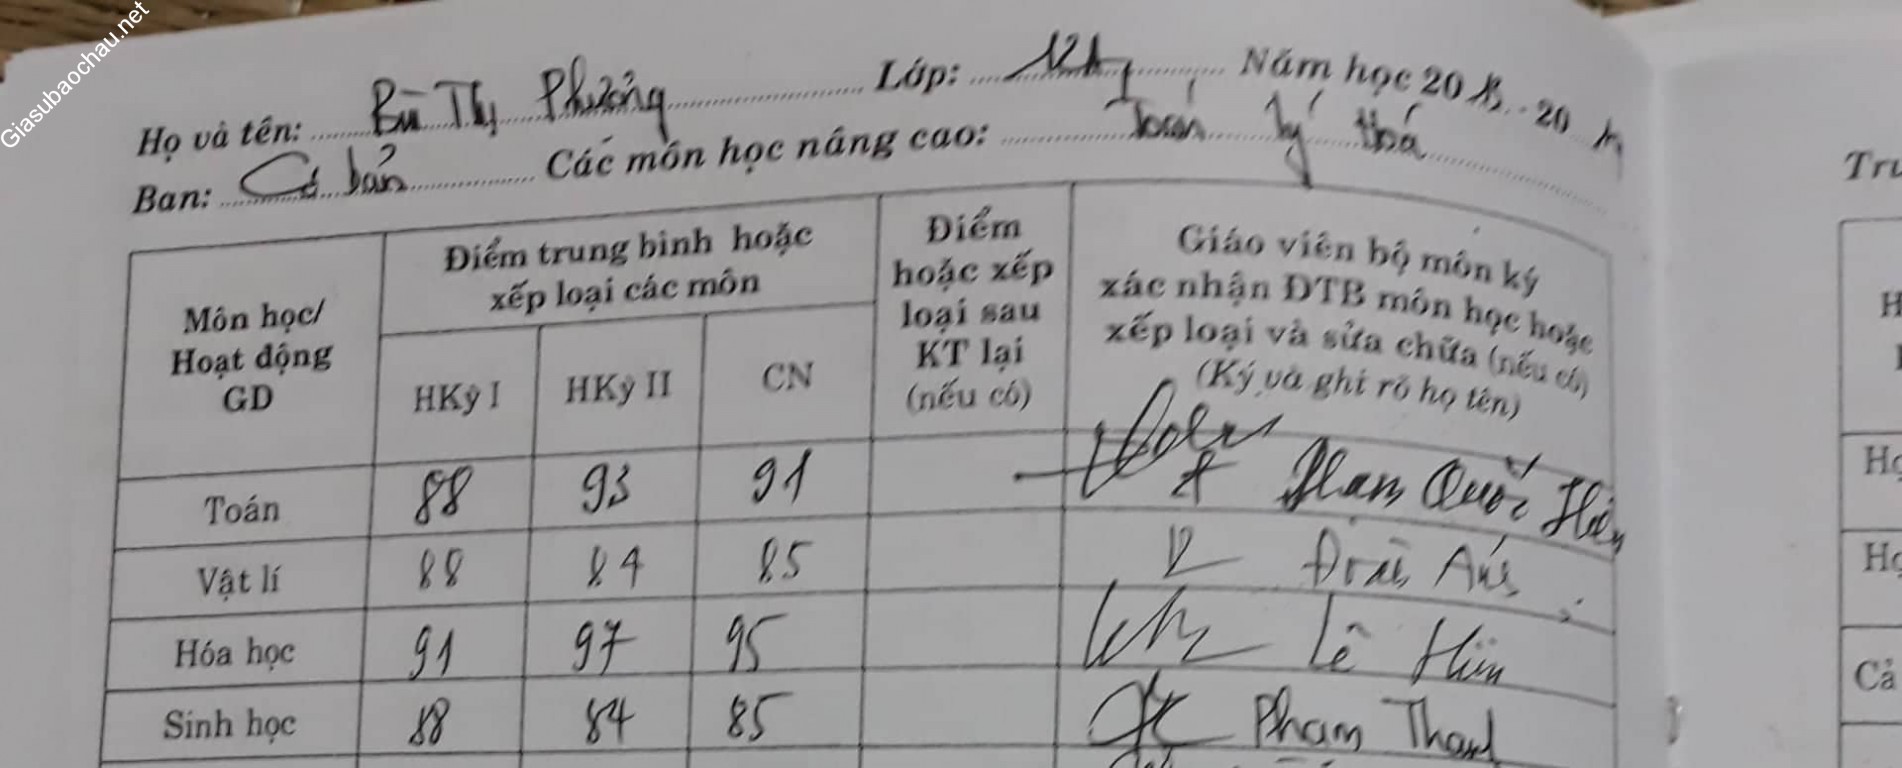 Giasubaochau.net
Họ và tên: Bùi Thị Phượng Lớp: 12A1 Năm học 20 - 20
Ban: Cơ bản Các môn học nâng cao: Toán Lý Hoá
Môn học/
Hoạt động
GD
Điểm trung bình hoặc
xếp loại các môn
HKỳ I HKỳ II CN
Điểm
hoặc xếp
loại sau
KT lại
(nếu có)
Giáo viên bộ môn ký
xác nhận ĐTB môn học hoặc
xếp loại và sửa chữa (nếu có)
(Ký và ghi rõ họ tên)
Toán 88 93 91 Phạm Quốc
Vật lí 88 84 85
Hóa học 91 97 95 Lê
Sinh học 88 84 85 Phạm
Trư
H
Họ
Họ
Cả